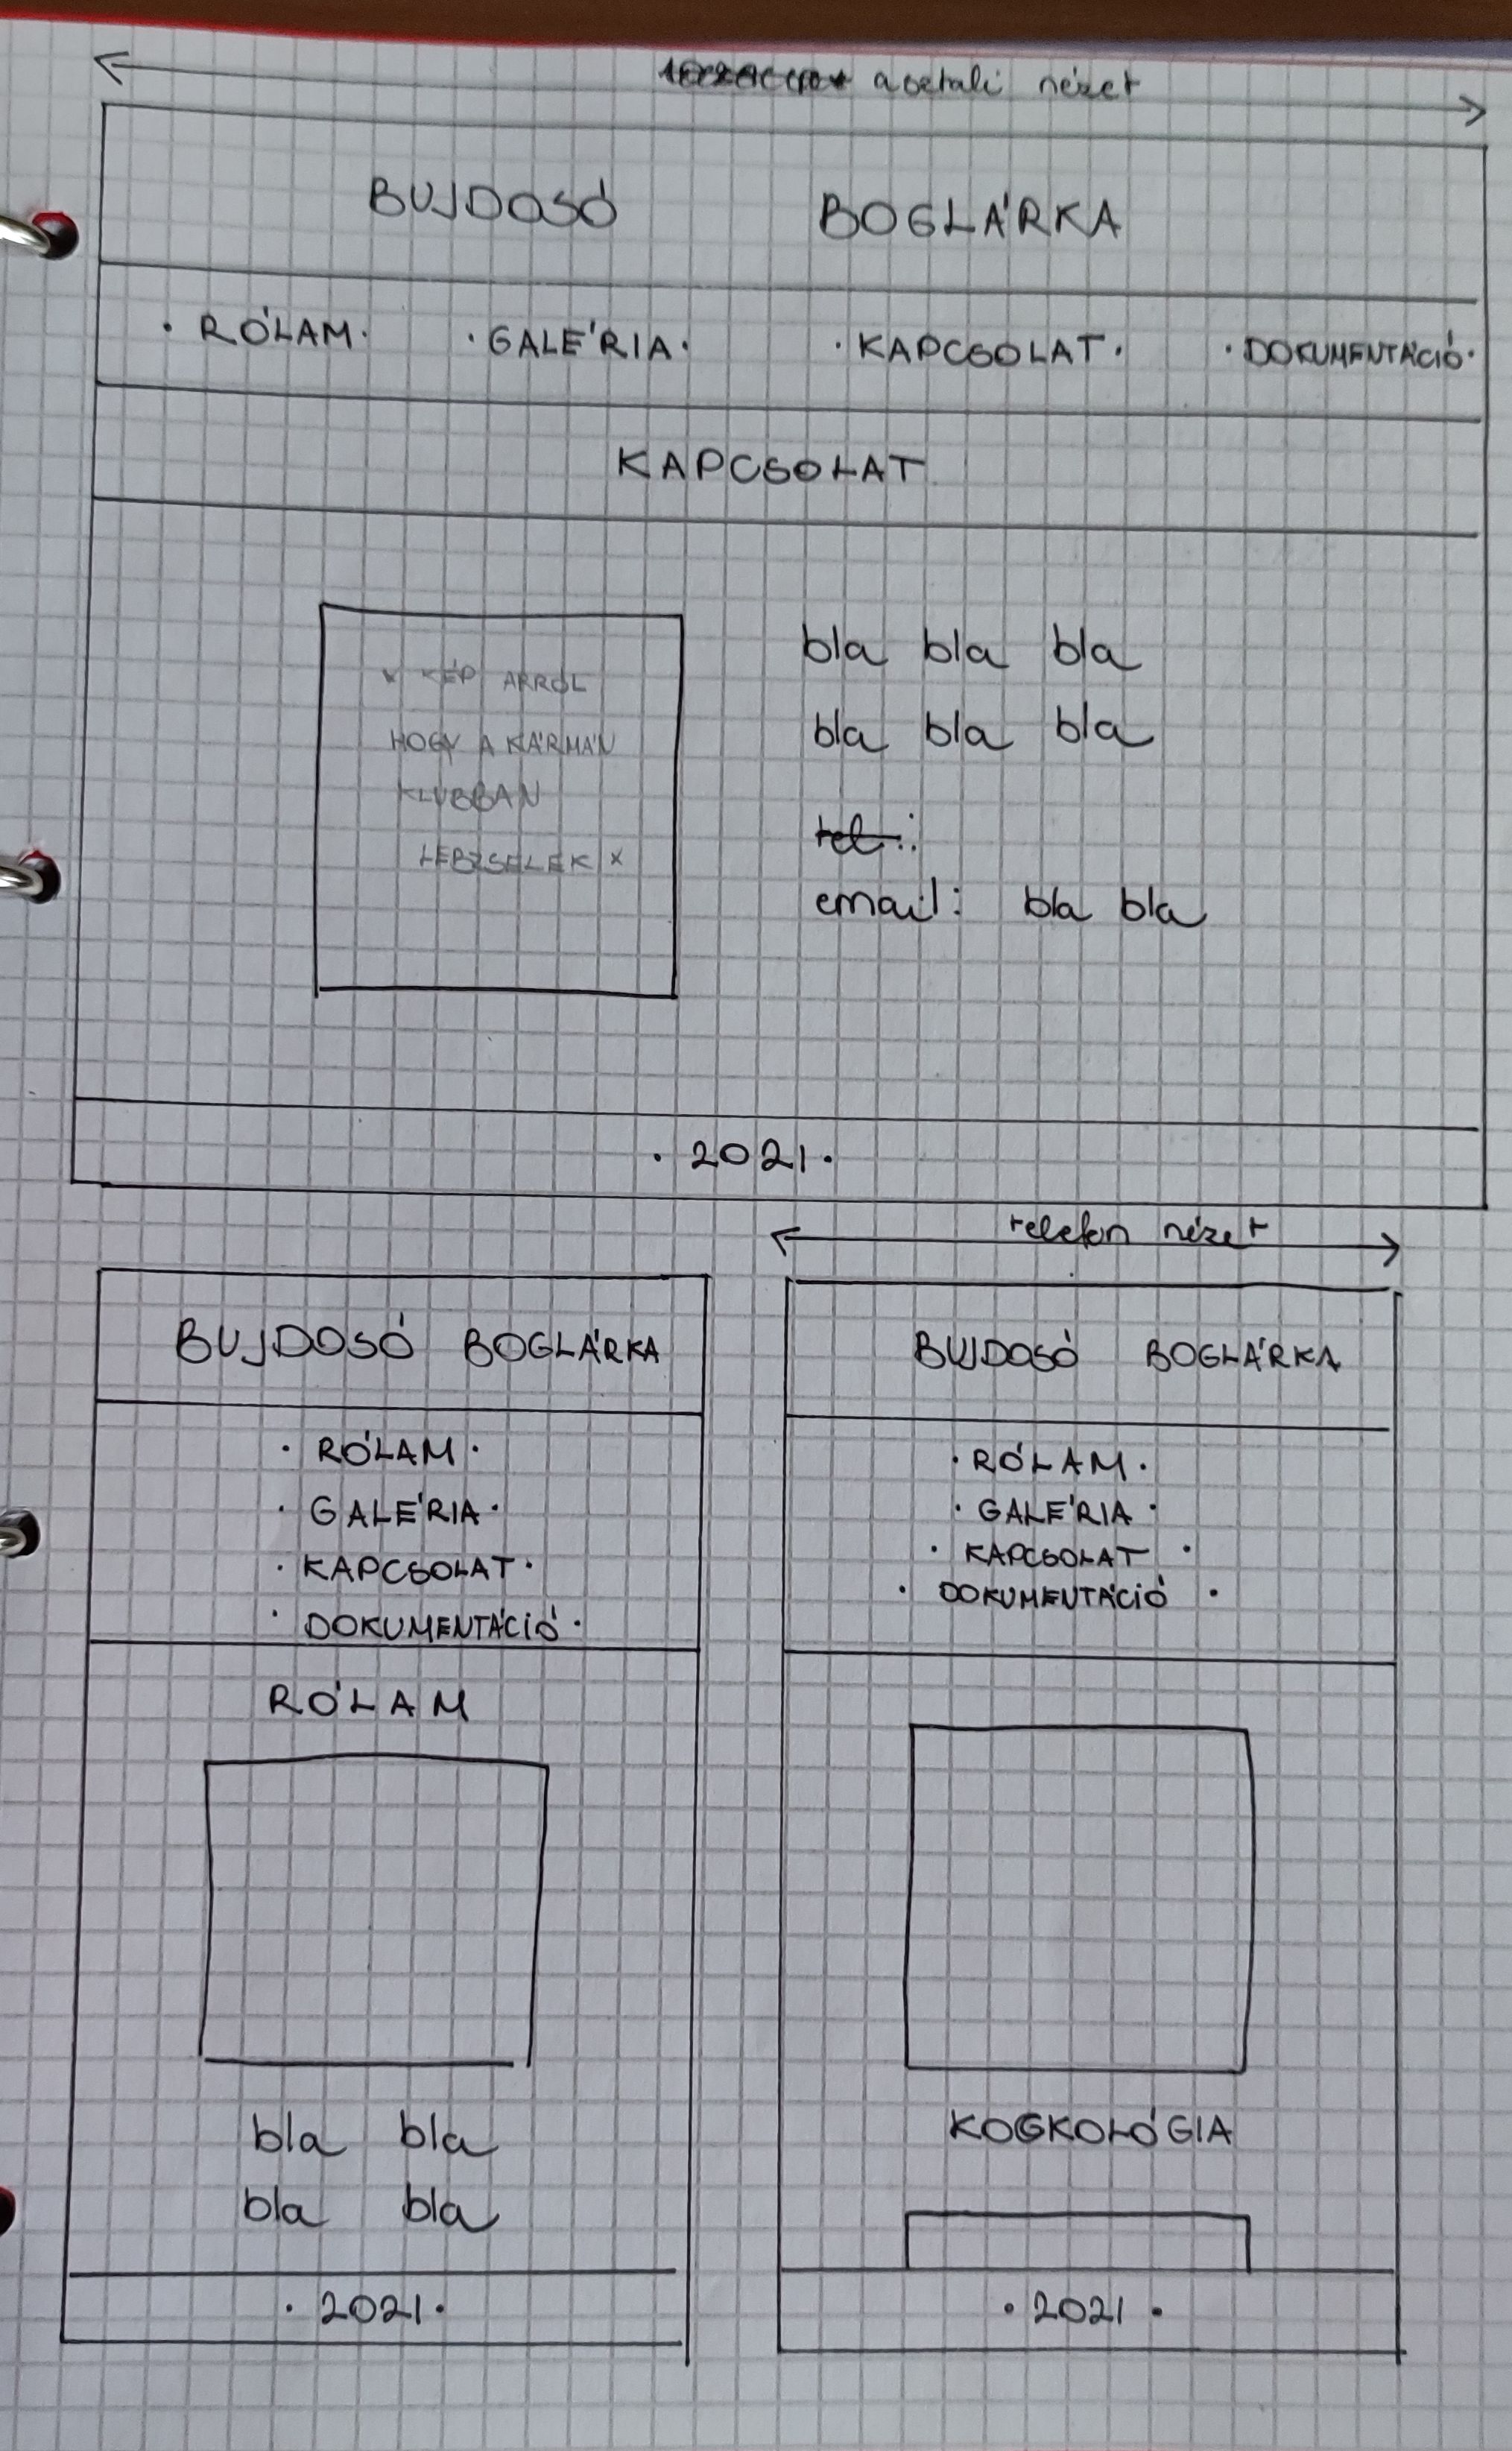 asztali nézet
BUJDOSÓ BOGLÁRKA
· RÓLAM · · GALÉRIA · · KAPCSOLAT · · DOKUMENTÁCIÓ ·
KAPCSOLAT
x KÉP ARRÓL
HOGY A KÁRMÁN
KLUBBAN
LEBZSELEK x
bla bla bla
bla bla bla
tel.:
email: bla bla
· 2021 ·
telefon nézet
BUJDOSÓ BOGLÁRKA
· RÓLAM ·
· GALÉRIA ·
· KAPCSOLAT ·
· DOKUMENTÁCIÓ ·
RÓLAM
bla bla
bla bla
· 2021 ·
BUJDOSÓ BOGLÁRKA
· RÓLAM ·
· GALÉRIA ·
· KAPCSOLAT ·
· DOKUMENTÁCIÓ ·
KOGKOLÓGIA
· 2021 ·